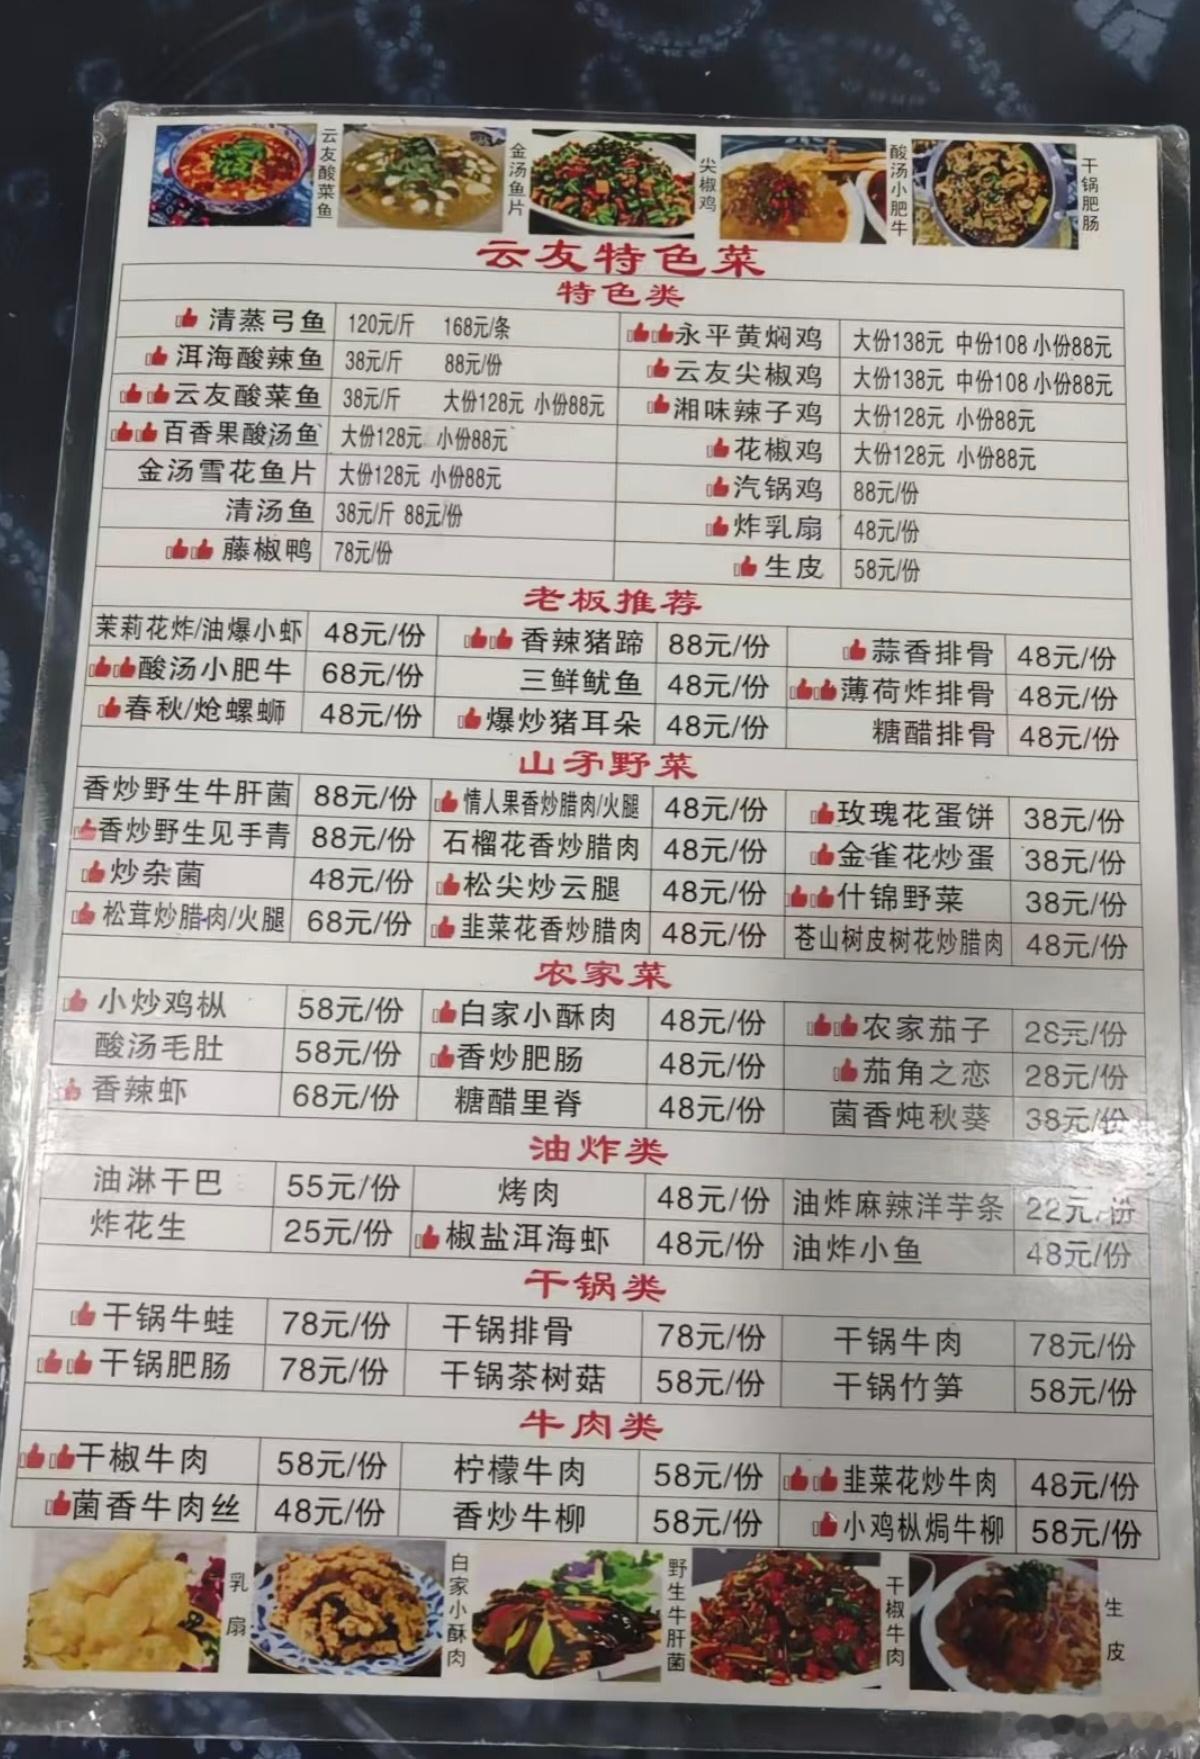 云友酸菜鱼
金汤鱼片
尖椒鸡
酸汤小肥牛
干锅肥肠
云友特色菜
特色类
清蒸弓鱼 120元/斤 168元/条 永平黄焖鸡 大份138元 中份108 小份88元
洱海酸辣鱼 38元/斤 88元/份 云友尖椒鸡 大份138元 中份108 小份88元
云友酸菜鱼 38元/斤 大份128元 小份88元 湘味辣子鸡 大份128元 小份88元
百香果酸汤鱼 大份128元 小份88元 花椒鸡 大份128元 小份88元
金汤雪花鱼片 大份128元 小份88元 汽锅鸡 88元/份
清汤鱼 38元/斤 88元/份 炸乳扇 48元/份
藤椒鸭 78元/份 生皮 58元/份
老板推荐
茉莉花炸/油爆小虾 48元/份 香辣猪蹄 88元/份 蒜香排骨 48元/份
酸汤小肥牛 68元/份 三鲜鱿鱼 48元/份 薄荷炸排骨 48元/份
春秋/炝螺蛳 48元/份 爆炒猪耳朵 48元/份 糖醋排骨 48元/份
山矛野菜
香炒野生牛肝菌 88元/份 情人果香炒腊肉/火腿 48元/份 玫瑰花蛋饼 38元/份
香炒野生见手青 88元/份 石榴花香炒腊肉 48元/份 金雀花炒蛋 38元/份
炒杂菌 48元/份 松尖炒云腿 48元/份 什锦野菜 38元/份
松茸炒腊肉/火腿 68元/份 韭菜花香炒腊肉 48元/份 苍山树皮树花炒腊肉 48元/份
农家菜
小炒鸡枞 58元/份 白家小酥肉 48元/份 农家茄子 28元/份
酸汤毛肚 58元/份 香炒肥肠 48元/份 茄角之恋 28元/份
香辣虾 68元/份 糖醋里脊 48元/份 菌香炖秋葵 38元/份
油炸类
油淋干巴 55元/份 烤肉 48元/份 油炸麻辣洋芋条 22元/份
炸花生 25元/份 椒盐洱海虾 48元/份 油炸小鱼 48元/份
干锅类
干锅牛蛙 78元/份 干锅排骨 78元/份 干锅牛肉 78元/份
干锅肥肠 78元/份 干锅茶树菇 58元/份 干锅竹笋 58元/份
牛肉类
干椒牛肉 58元/份 柠檬牛肉 58元/份 韭菜花炒牛肉 48元/份
菌香牛肉丝 48元/份 香炒牛柳 58元/份 小鸡枞焗牛柳 58元/份
乳扇
白家小酥肉
野生牛肝菌
干椒牛肉
生皮